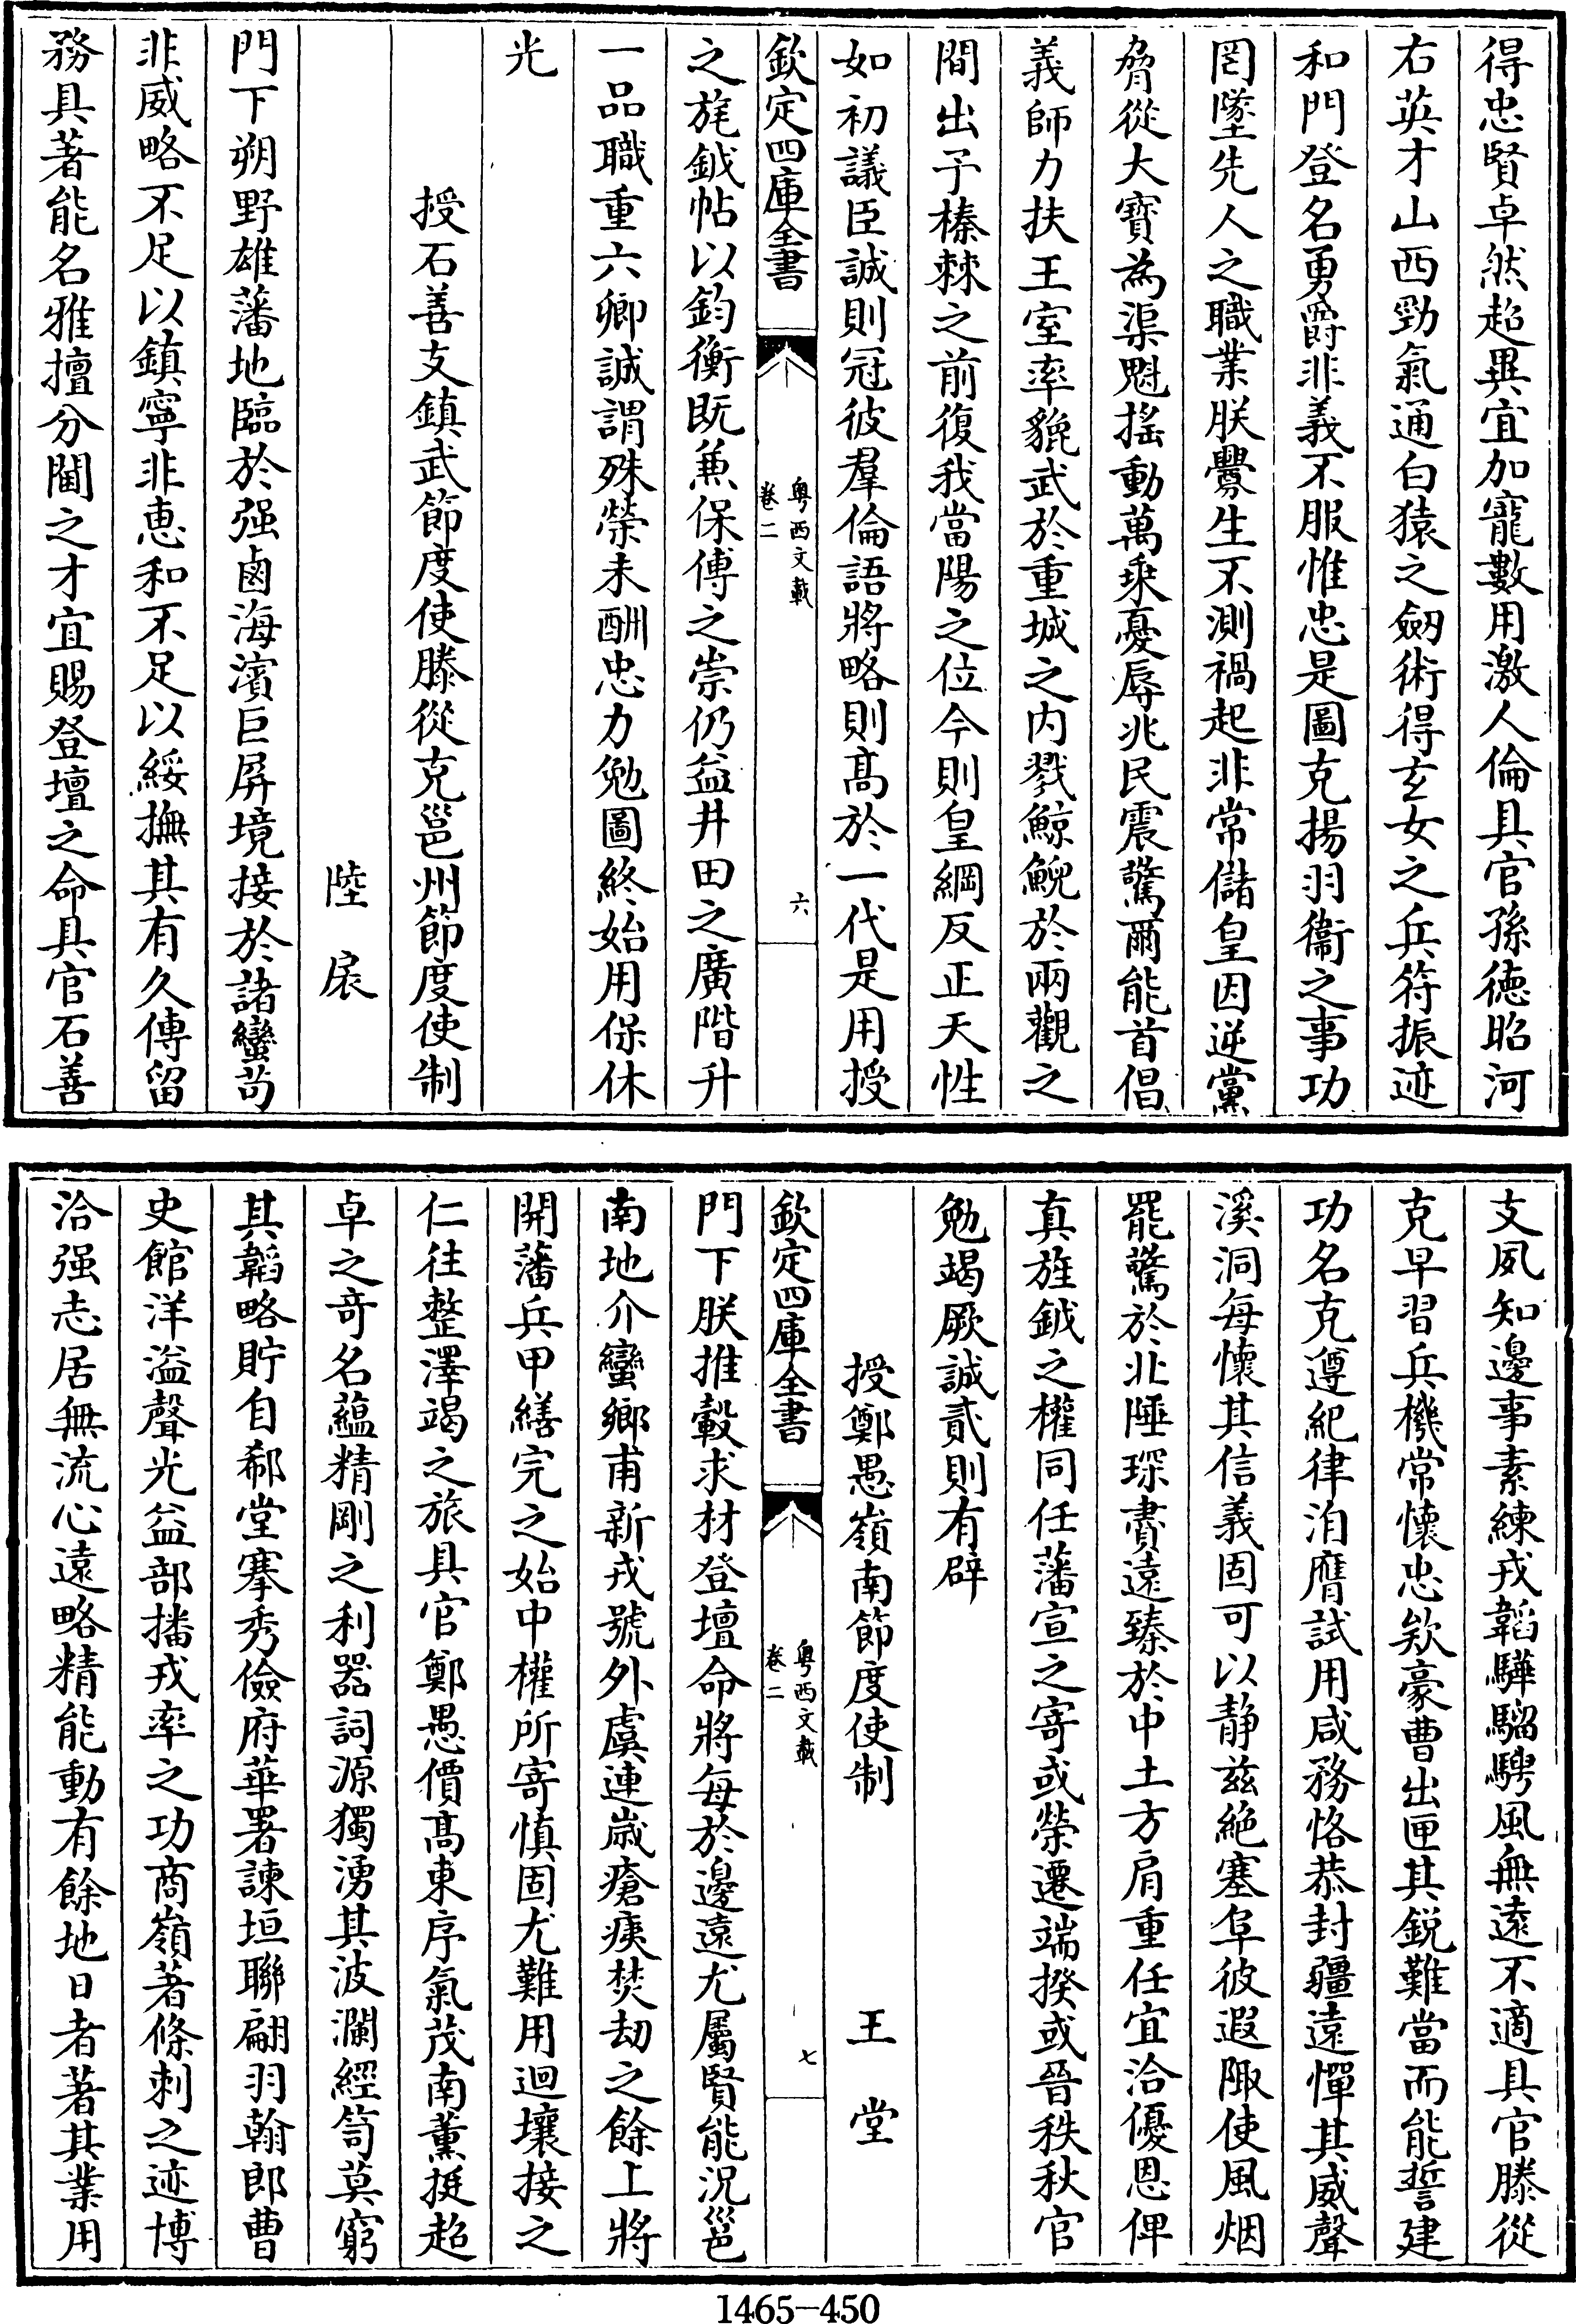 得忠賢卓然超異宜加寵數用激人倫具官孫徳昭河
右英才山西勁氣通白猿之劒術得玄女之兵符振迹
和門登名勇爵非義不服惟忠是圖克揚羽衞之事功
罔墜先人之職業朕釁生不測禍起非常儲皇因逆黨
脅從大寳為渠魁搖動萬乗憂辱兆民震驚爾能首倡
義師力扶王室率貔武於重城之内戮鯨鯢於兩觀之
間出予榛棘之前復我當陽之位今則皇綱反正天性
如初議臣誠則冠彼羣倫語將略則髙於一代是用授
欽定四庫全書
粤西文載
卷二
六
之旄鉞帖以鈞衡既兼保傅之崇仍益井田之廣階升
一品職重六卿誠謂殊榮未酬忠力勉圖終始用保休
光
授石善支鎮武節度使滕從克邕州節度使制
陸扆
門下朔野雄藩地臨於强鹵海濱巨屏境接於諸蠻苟
非威略不足以鎮寧非恵和不足以綏撫其有久傳留
務具著能名雅擅分閫之才宜賜登壇之命具官石善
支夙知邊事素練戎韜驊騮騁風無遠不適具官滕從
克早習兵機常懷忠欵豪曹出匣其鋭難當而能誓建
功名克遵紀律洎膺試用咸務恪恭封疆遠憚其威聲
溪洞每懷其信義固可以静兹絶塞阜彼遐陬使風烟
罷驚於北陲琛賮遠臻於中土方肩重任宜洽優恩俾
真旌鉞之權同任藩宣之寄或榮遷端揆或晉秩秋官
勉竭厥誠貳則有辟
授鄭愚嶺南節度使制
王堂
欽定四庫全書
粤西文載
卷二
七
門下朕推轂求材登壇命將每於邊遠尤屬賢能況邕
南地介蠻鄉甫新戎號外虞連嵗瘡痍焚刼之餘上將
開藩兵甲繕完之始中權所寄慎固尤難用迴壤接之
仁往整澤竭之旅具官鄭愚價髙東序氣茂南薰挺超
卓之竒名藴精剛之利器詞源獨湧其波瀾經笥莫窮
其韜略貯自郗堂搴秀儉府華署諫垣聯翩羽翰郎曹
史館洋溢聲光益部播戎率之功商嶺著條刺之迹博
洽强志居無流心遠略精能動有餘地日者著其業用
1465-450